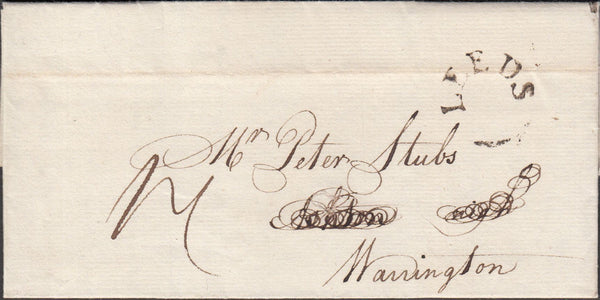 LEEDS
Mr Peter Stubs
Warrington